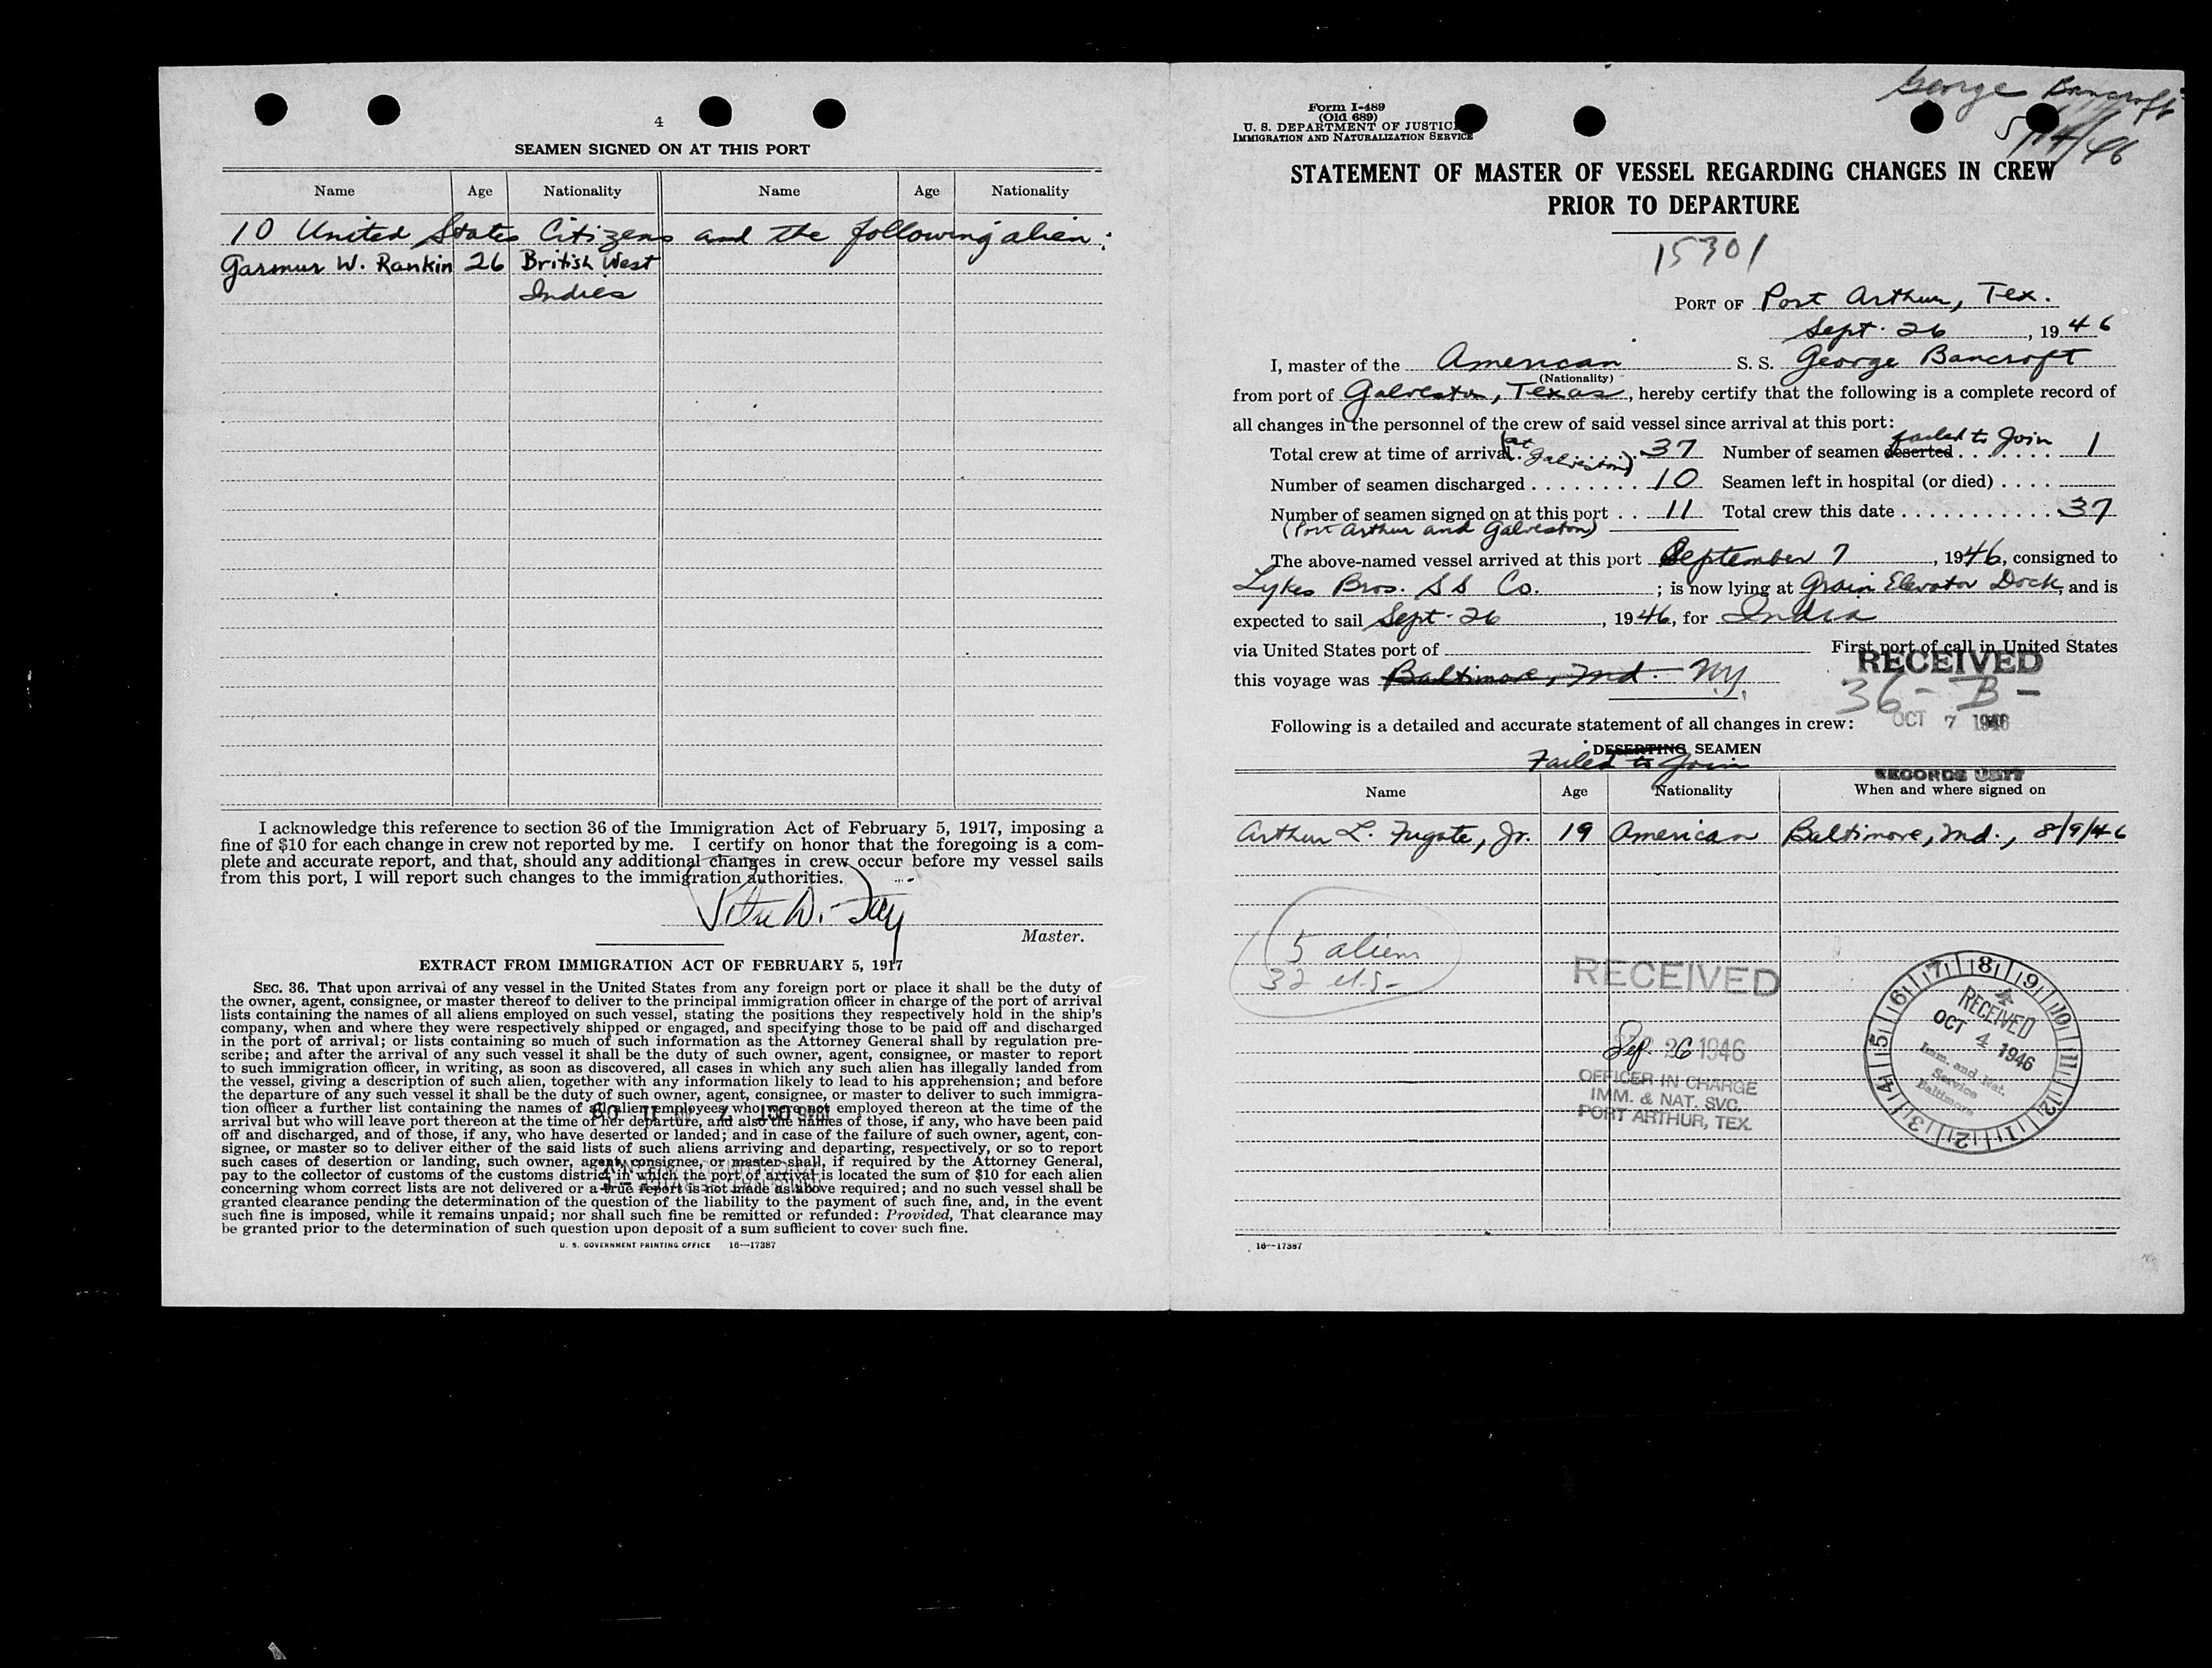 4
SEAMEN SIGNED ON AT THIS PORT
Name Age Nationality Name Age Nationality
10 United States Citizens and the following alien:
Garmur W. Rankin 26 British West
Indies
I acknowledge this reference to section 36 of the Immigration Act of February 5, 1917, imposing a
fine of $10 for each change in crew not reported by me. I certify on honor that the foregoing is a com-
plete and accurate report, and that, should any additional changes in crew occur before my vessel sails
from this port, I will report such changes to the immigration authorities.
Master.
EXTRACT FROM IMMIGRATION ACT OF FEBRUARY 5, 1917
SEC. 36. That upon arrival of any vessel in the United States from any foreign port or place it shall be the duty of
the owner, agent, consignee, or master thereof to deliver to the principal immigration officer in charge of the port of arrival
lists containing the names of all aliens employed on such vessel, stating the positions they respectively hold in the ship's
company, when and where they were respectively shipped or engaged, and specifying those to be paid off and discharged
in the port of arrival; or lists containing so much of such information as the Attorney General shall by regulation pre-
scribe; and after the arrival of any such vessel it shall be the duty of such owner, agent, consignee, or master to report
to such immigration officer, in writing, as soon as discovered, all cases in which any such alien has illegally landed from
the vessel, giving a description of such alien, together with any information likely to lead to his apprehension; and before
the departure of any such vessel it shall be the duty of such owner, agent, consignee, or master to deliver to such immigra-
tion officer a further list containing the names of all alien employees who were not employed thereon at the time of the
arrival but who will leave port thereon at the time of her departure, and also the names of those, if any, who have been paid
off and discharged, and of those, if any, who have deserted or landed; and in case of the failure of such owner, agent, con-
signee, or master so to deliver either of the said lists of such aliens arriving and departing, respectively, or so to report
such cases of desertion or landing, such owner, agent, consignee, or master shall, if required by the Attorney General,
pay to the collector of customs of the customs district in which the port of arrival is located the sum of $10 for each alien
concerning whom correct lists are not delivered or a true report is not made as above required; and no such vessel shall be
granted clearance pending the determination of the question of the liability to the payment of such fine, and, in the event
such fine is imposed, while it remains unpaid; nor shall such fine be remitted or refunded: Provided, That clearance may
be granted prior to the determination of such question upon deposit of a sum sufficient to cover such fine.
U. S. GOVERNMENT PRINTING OFFICE 16—17387
George Bancroft
Form I-489
(Old 689)
U. S. DEPARTMENT OF JUSTICE
IMMIGRATION AND NATURALIZATION SERVICE
STATEMENT OF MASTER OF VESSEL REGARDING CHANGES IN CREW
PRIOR TO DEPARTURE
15301
PORT OF Port Arthur, Tex.
Sept. 26, 1946
I, master of the American S. S. George Bancroft
(Nationality)
from port of Galveston, Texas, hereby certify that the following is a complete record of
all changes in the personnel of the crew of said vessel since arrival at this port:
failed to Join
Total crew at time of arrival (at Galveston) 37 Number of seamen deserted 1
Number of seamen discharged 10 Seamen left in hospital (or died)
Number of seamen signed on at this port 11 Total crew this date 37
(Port Arthur and Galveston)
The above-named vessel arrived at this port September 7, 1946, consigned to
Lykes Bros. SS Co.; is now lying at Grain Elevator Dock, and is
expected to sail Sept. 26, 1946, for India
via United States port of First port of call in United States
RECEIVED
this voyage was Baltimore, Md. NY.
36-B-
OCT 7 1946
Following is a detailed and accurate statement of all changes in crew:
DESERTING SEAMEN
Failed to Join
RECORDS UNIT
Name Age Nationality When and where signed on
Arthur L. Fugate, Jr. 19 American Baltimore, Md., 8/9/46
5 aliens
32 U.S.
RECEIVED
Sep. 26 1946
OFFICER IN CHARGE
IMM. & NAT. SVC.
PORT ARTHUR, TEX.
RECEIVED
OCT 4 1946
Imm. and Nat.
Service
Baltimore
7 8 9 10 11 12 1 2 3 4 5 6
16—17387